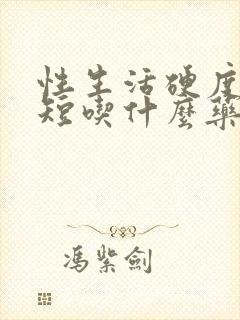 性生活硬度
短喫什麼藥
馮紫劍